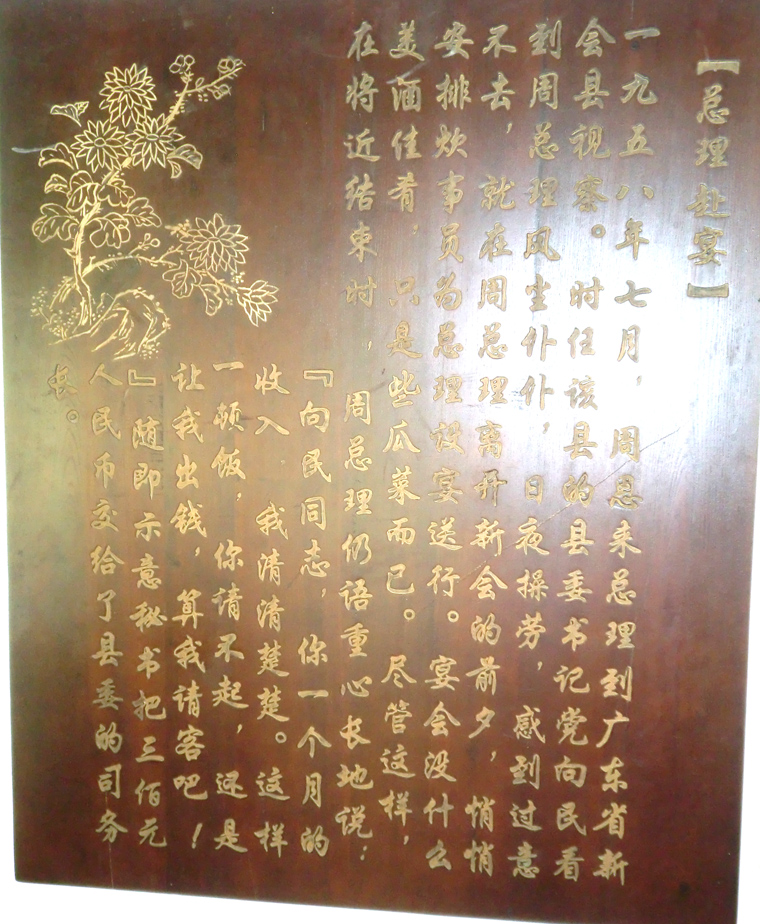 【总理赴宴】
一九五八年七月，周恩来总理到广东省新
会县视察。时任该县的县委书记党向民看
到周总理风尘仆仆，日夜操劳，感到过意
不去，就在周总理离开新会的前夕，悄悄
安排炊事员为总理设宴送行。宴会没什么
美酒佳肴，只是些瓜菜而已。尽管这样，
在将近结束时，周总理仍语重心长地说：
『向民同志，你一个月的
收入，我清清楚楚。这样
一顿饭，你请不起，还是
让我出钱，算我请客吧！
』随即示意秘书把三佰元
人民币交给了县委的司务
长。